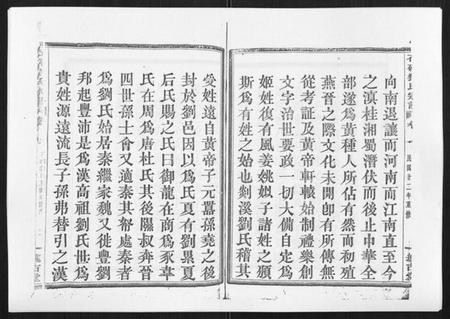 向南退讓而河南而江南直至今
之滇桂湘蜀潛伏而後止中華全
部遂爲黃種人所佔有然而初殖
燕晉之際文化未開卽有所傳無
從考証及黃帝軒轅始制禮樂創
文字治世要政一切大備自定爲
姬姓復有風姜姚姒子諸姓之頒
斯爲有姓之始也剡溪劉氏稽其
受姓遠自黃帝子元囂孫堯之後
封於劉邑因以爲氏夏有劉累夏
后氏賜之氏曰御龍在商爲豕韋
氏在周爲唐杜氏其後隰叔奔晉
四世孫士會又適秦其帑處秦者
爲劉氏始居秦繼家魏又徙豐劉
邦起豐沛是爲漢高祖劉氏世爲
貴姓源遠流長子孫弗替引之漢